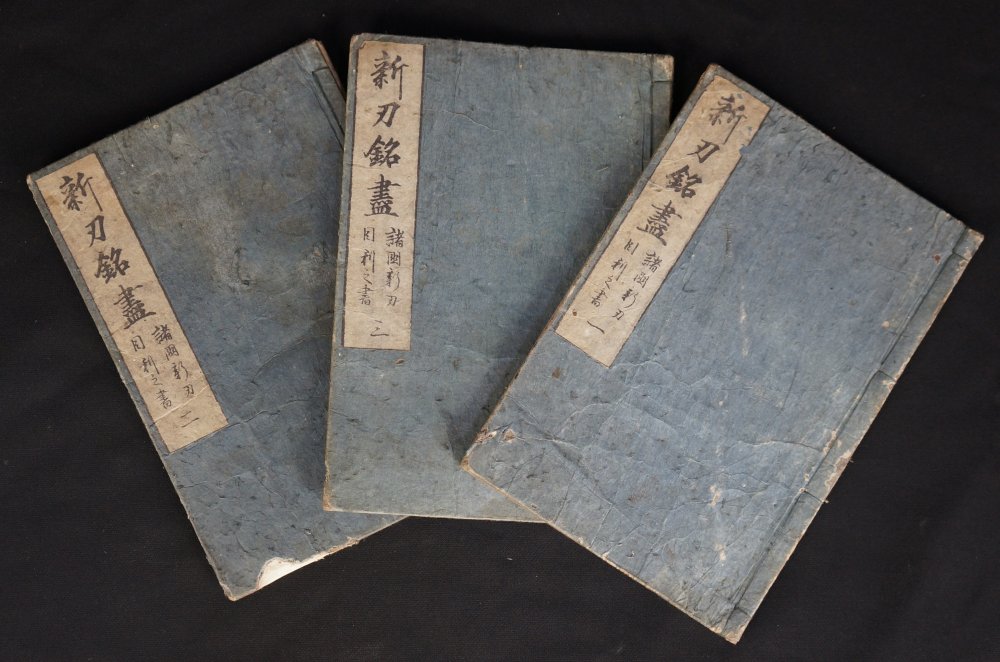 新刃銘盡
諸國新刃
目利之書
一
新刃銘盡
諸國新刃
目利之書
二
新刃銘盡
諸國新刃
目利之書
二